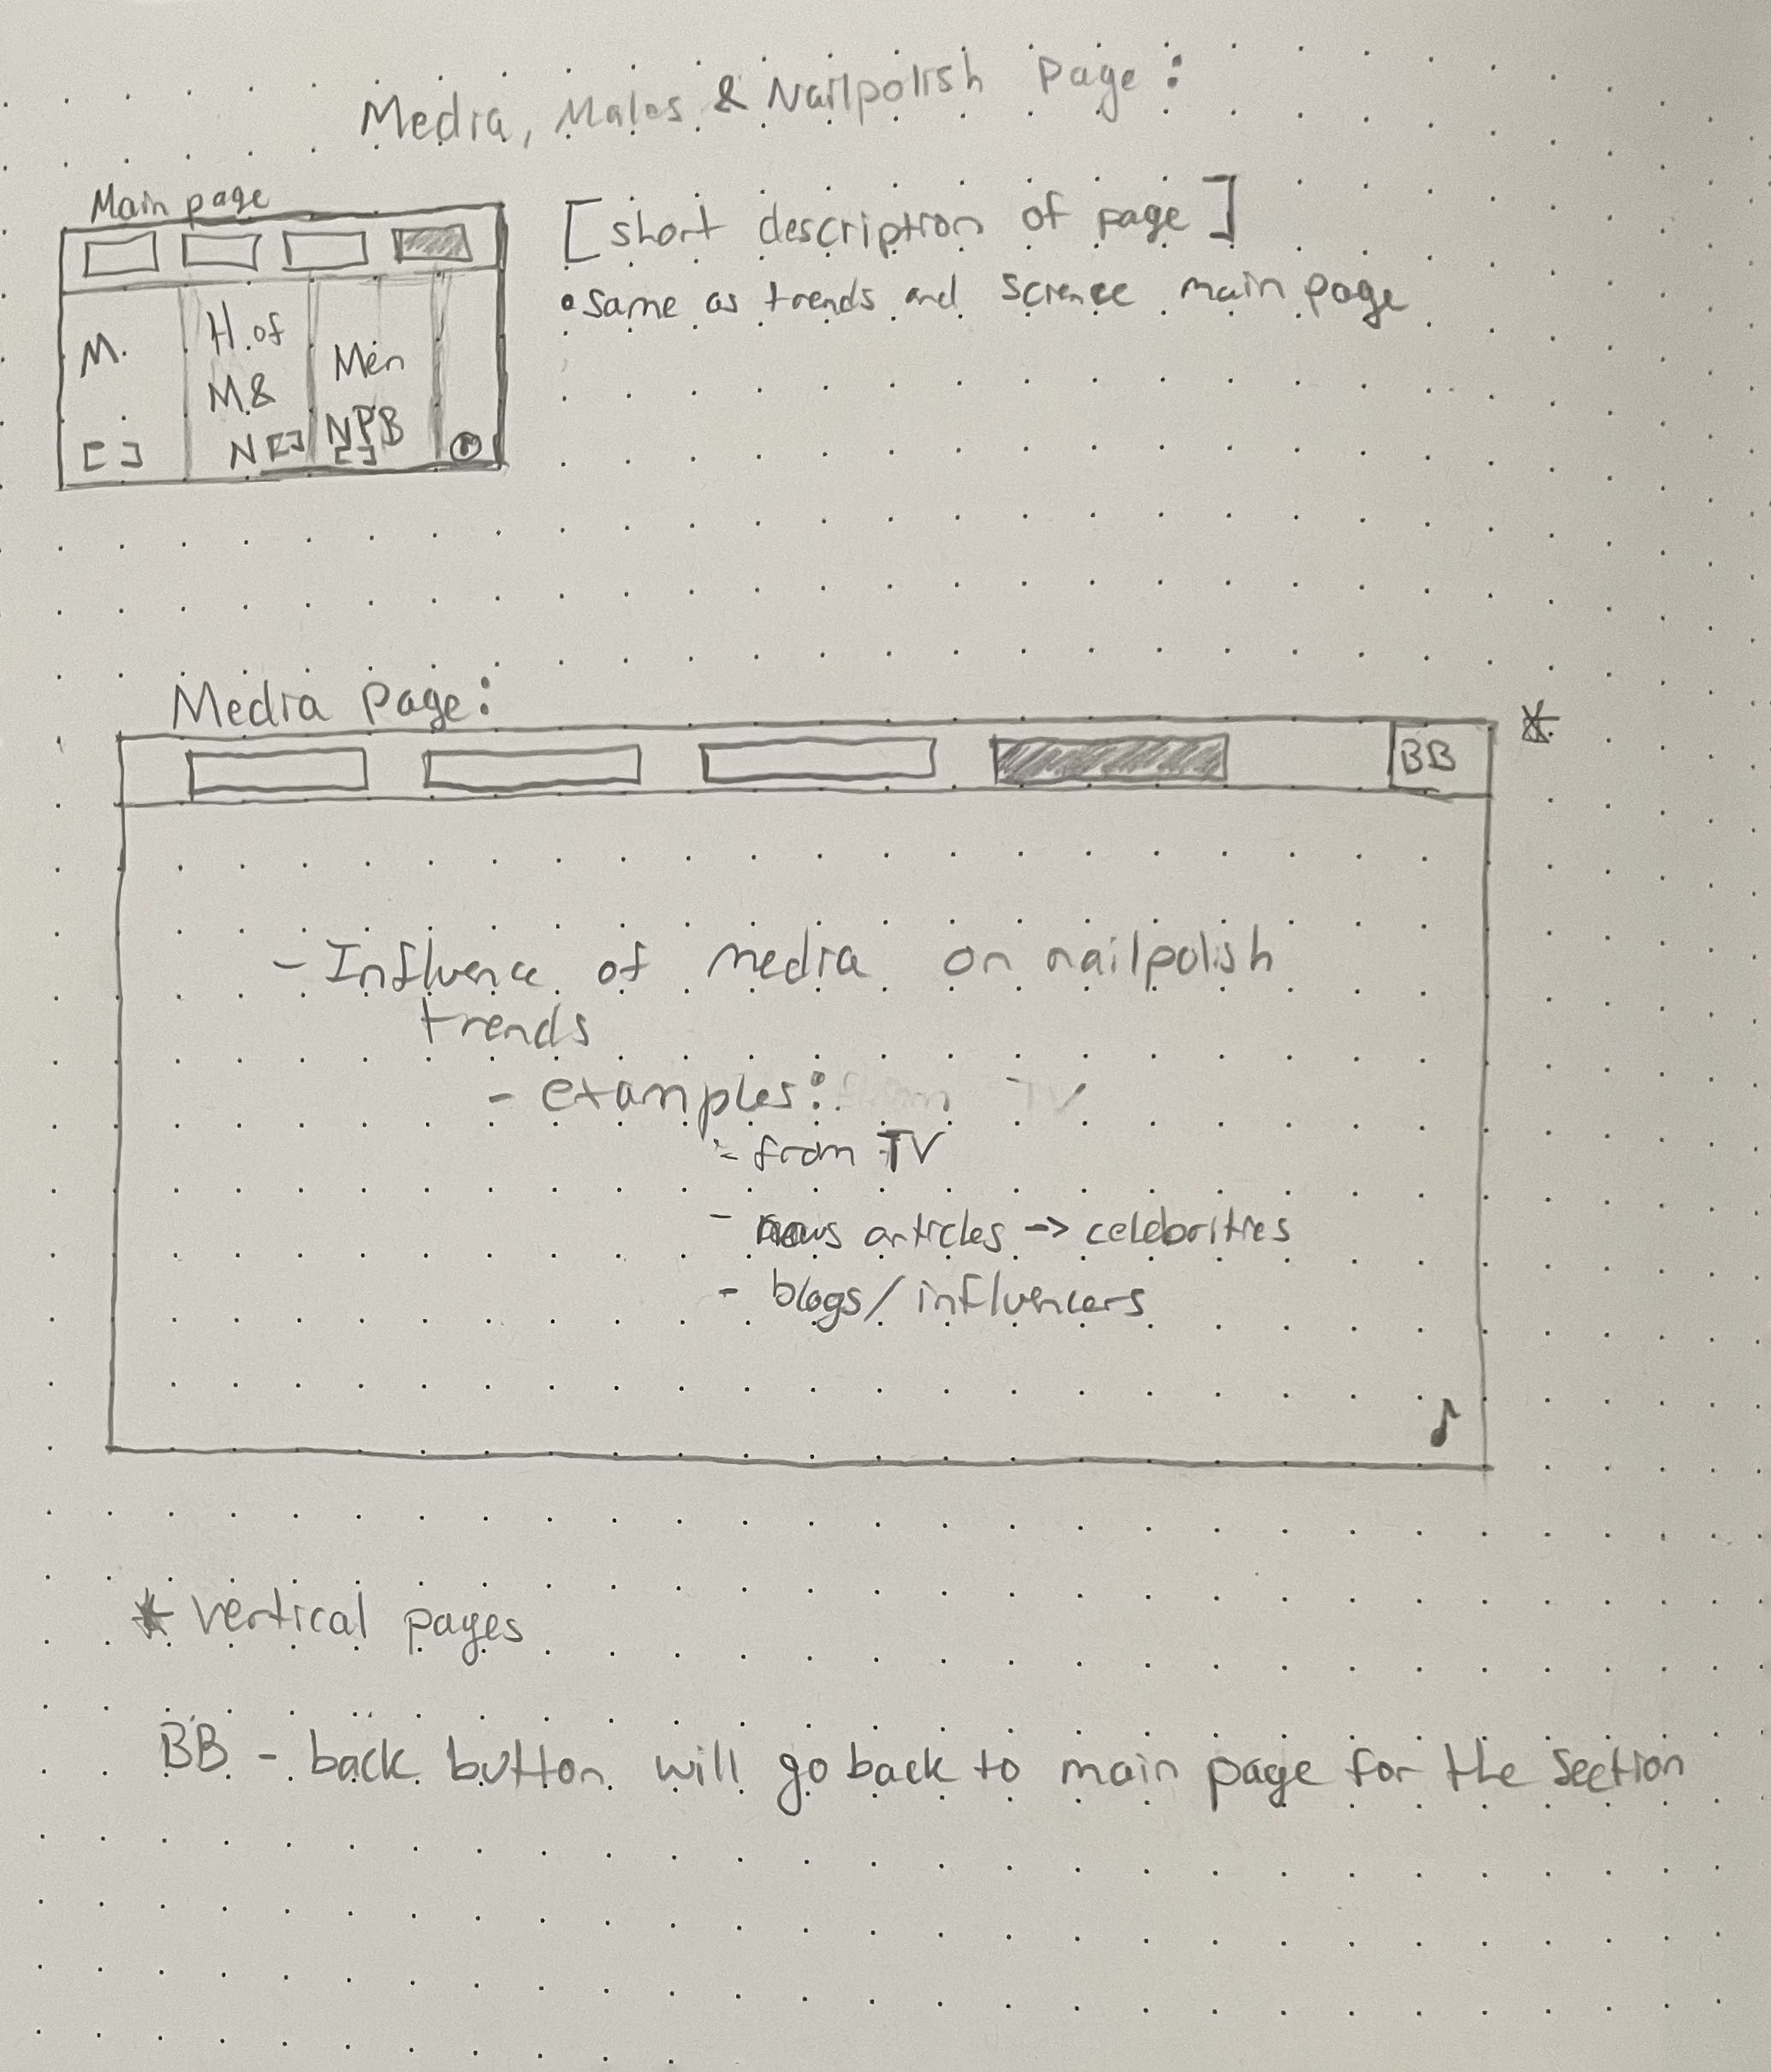 Media, Males & Nailpolish Page:
Main page
[short description of page]
• same as trends and science main page
M.
[ ]
H. of
M. &
N [ ]
Men
NPB
[ ]
Media Page:
*
BB
- Influence of media on nailpolish
trends
- examples:
- from TV
- news articles -> celebrities
- blogs/influencers
* vertical pages
BB - back button will go back to main page for the section